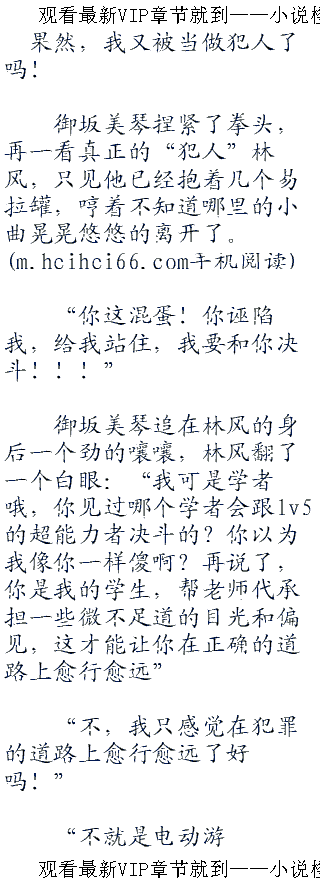 观看最新VIP章节就到——小说楼
果然，我又被当做犯人了
吗！
御坂美琴捏紧了拳头，
再一看真正的“犯人”林
风，只见他已经抱着几个易
拉罐，哼着不知道哪里的小
曲晃晃悠悠的离开了。
(m.hcihci66.com手机阅读)
“你这混蛋！你诬陷
我，给我站住，我要和你决
斗！！！”
御坂美琴追在林风的身
后一个劲的嚷嚷，林风翻了
一个白眼：“我可是学者
哦，你见过哪个学者会跟lv5
的超能力者决斗的？你以为
我像你一样傻啊？再说了，
你是我的学生，帮老师代承
担一些微不足道的目光和偏
见，这才能让你在正确的道
路上愈行愈远”
“不，我只感觉在犯罪
的道路上愈行愈远了好
吗！”
“不就是电动游
观看最新VIP章节就到——小说楼